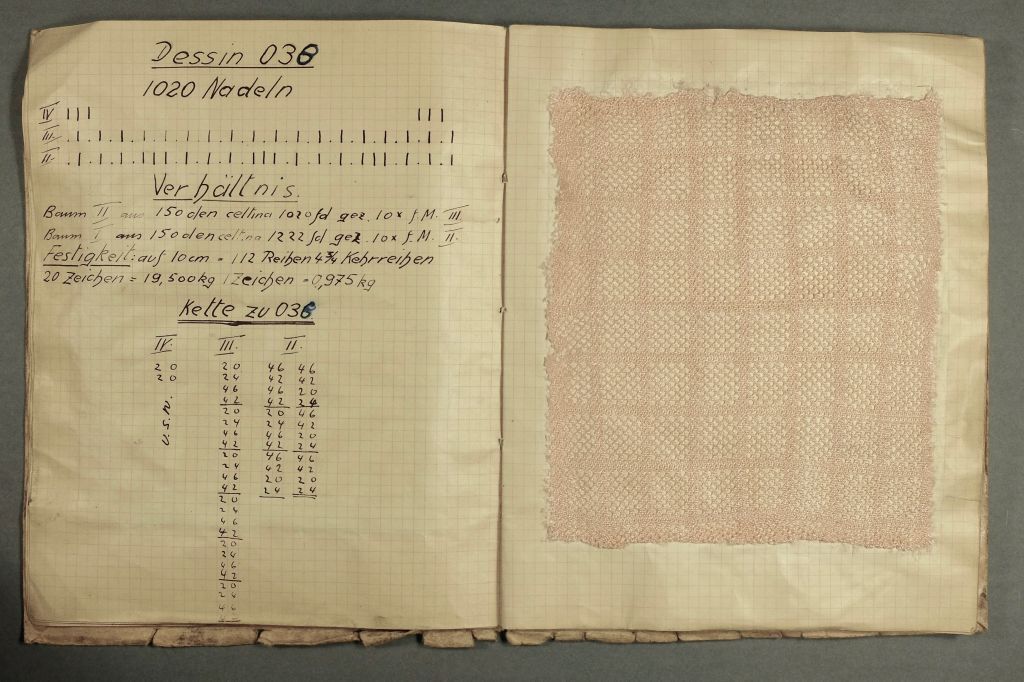 Dessin 036
1020 Nadeln
IV
III.
II.
Verhältnis.
Baum II aus 150 den celtina 1020 fd gez. 10x f. M. III.
Baum I. aus 150 den celtina 1222 fd gez. 10x f. M. II.
Festigkeit: auf 10cm = 112 Reihen 4¾ Kehrreihen
20 Zeichen = 19,500 kg 1 Zeichen = 0,975 kg
Kette zu 036
IV. III. II.
20 20 46 46
20 24 42 42
46 46 20
42 42 24
20 20 46
U.S.W. 24 24 42
46 46 20
42 42 24
20 46 46
24 42 42
46 20 20
42 24 24
20
24
46
42
20
24
46
42
20
24
46